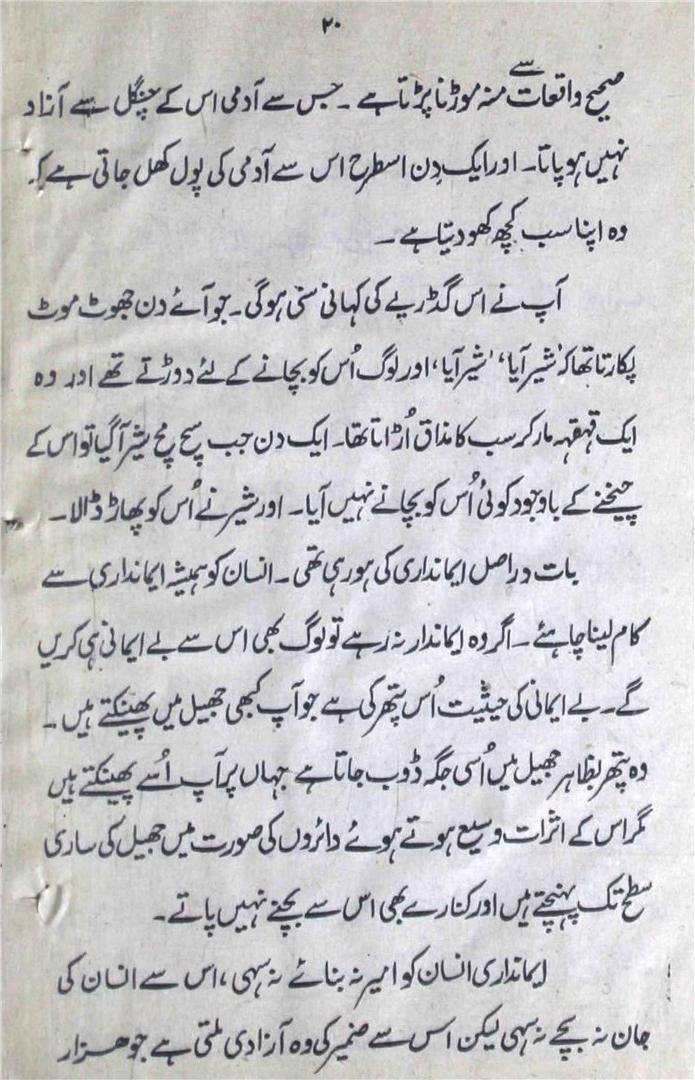 ۲۰
صحیح واقعات سے منہ موڑنا پڑتا ہے ۔ جس سے آدمی اس کے چنگل سے آزاد
نہیں ہو پاتا۔ اور ایک دِن اسطرح اس سے آدمی کی پول کھل جاتی ہے کہ
وہ اپنا سب کچھ کھو دیتا ہے ۔
آپ نے اس گڈریے کی کہانی سنی ہوگی ۔ جو آئے دن جھوٹ موٹ
پکارتا تھا کہ ’شیر آیا‘، ’شیر آیا‘، اور لوگ اُس کو بچانے کے لئے دوڑتے تھے اور وہ
ایک قہقہہ مار کر سب کا مذاق اُڑاتا تھا۔ ایک دن جب سچ مچ شیر آ گیا تو اس کے
چیخنے کے باوجود کوئی اُس کو بچانے نہیں آیا۔ اور شیر نے اُس کو پھاڑ ڈالا۔
بات دراصل ایمانداری کی ہو رہی تھی ۔ انسان کو ہمیشہ ایمانداری سے
کام لینا چاہئے ۔ اگر وہ ایماندار نہ رہے تو لوگ بھی اس سے بے ایمانی ہی کریں
گے ۔ بے ایمانی کی حیثیت اُس پتھر کی ہے جو آپ کبھی جھیل میں پھینکتے ہیں ۔
وہ پتھر بظاہر جھیل میں اُسی جگہ ڈوب جاتا ہے جہاں پر آپ اُسے پھینکتے ہیں
مگر اس کے اثرات وسیع ہوتے ہوئے دائروں کی صورت میں جھیل کی ساری
سطح تک پہنچتے ہیں اور کنارے بھی اس سے بچنے نہیں پاتے ۔
ایمانداری انسان کو امیر نہ بنائے نہ سہی ، اس سے انسان کی
جان نہ بچے نہ سہی لیکن اس سے ضمیر کی وہ آزادی ملتی ہے جو ہزار